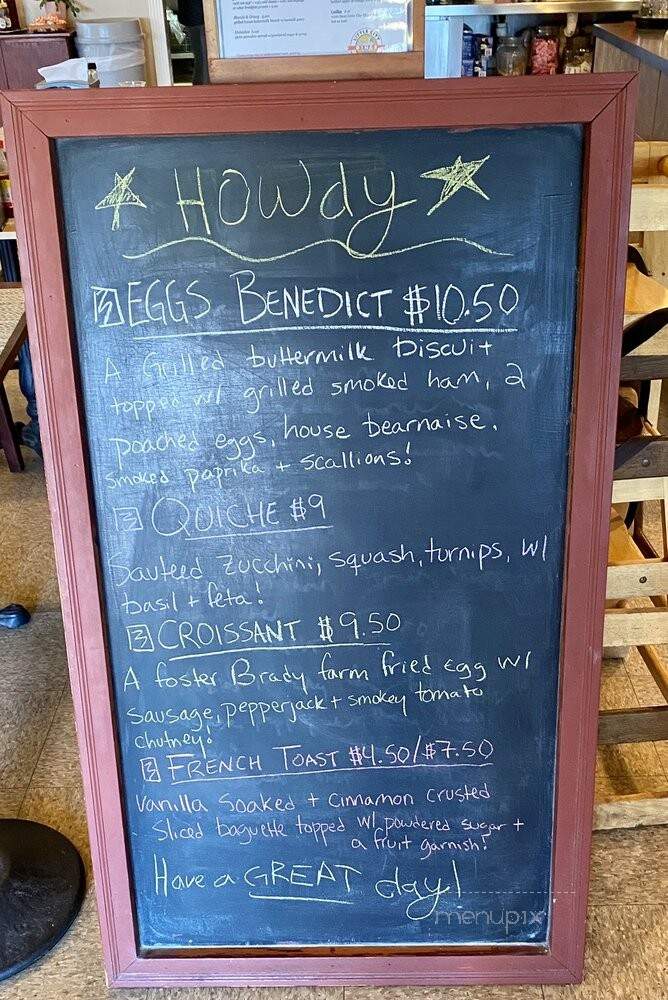 HOWdy
EGGS BENEDICT $10.50
A Grilled buttermilk biscuit
topped w/ grilled smoked ham, 2
poached eggs, house bearnaise,
smoked paprika + scallions!
QUICHE $9
Sauteed zucchini, squash, turnips, w/
basil + feta!
CROISSANT $9.50
A foster Brady farm fried egg w/
sausage, pepperjack + smokey tomato
chutney!
FRENCH TOAST $4.50/$7.50
Vanilla Soaked + Cinnamon crusted
sliced baguette topped w/ powdered sugar +
a fruit garnish!
Have a GREAT day!
menupix